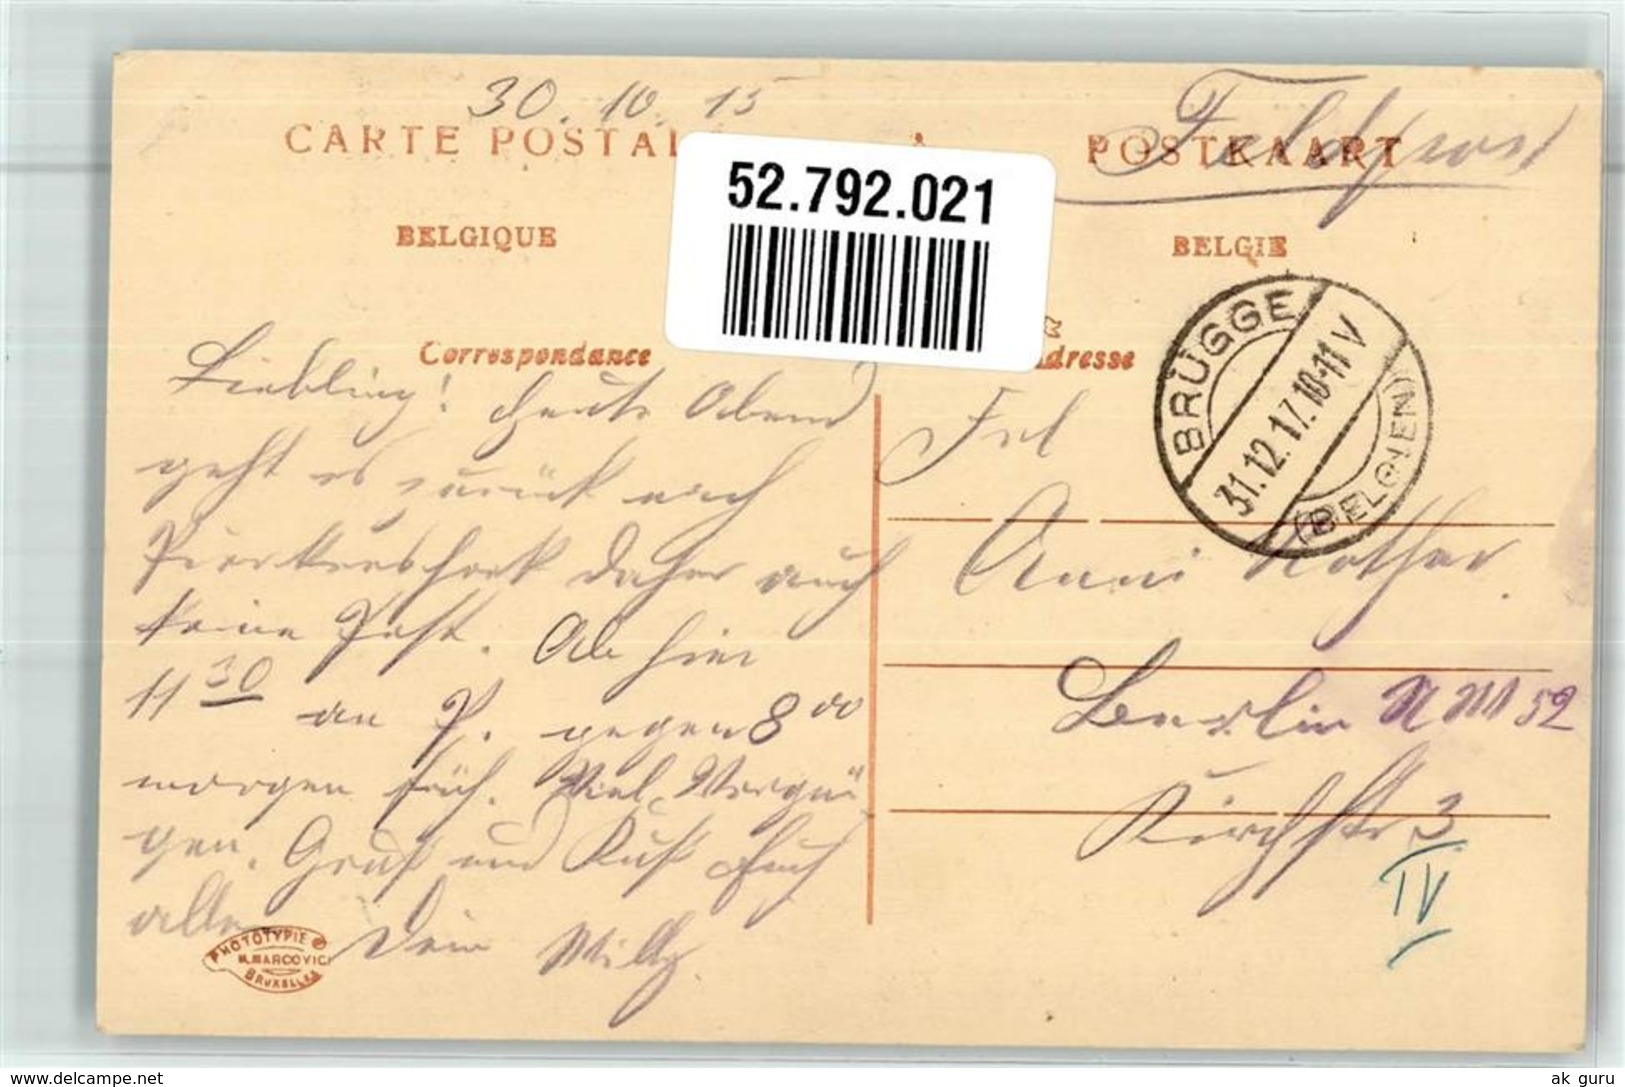 30. 10. 15
Feldpost
CARTE POSTAL
POSTKAART
52.792.021
BELGIQUE
BELGIE
Correspondance
Adresse
BRÜGGE
31.12.17.10-11 V
(BELGIEN)
Liebling! Heute Abend
geht es zurück nach
daher auch
keine Post. Ab hier
11 30 an P. gegen 8 00
morgen früh. Viel Vergnü
gen. Gruß und Kuß Euch
alle Dein Willy.
Frl
Anni Rother.
Berlin NW 52
Kirchstr 3
IV
PHOTOTYPIE
M. MARCOVICI
BRUXELLES
ak guru
www.delcampe.net